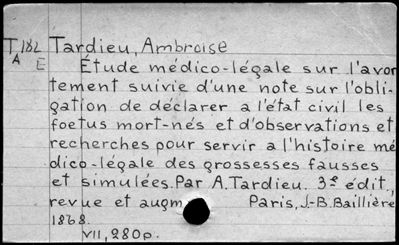 T,182 Tardieu, Ambroise
A E Étude médico-légale sur l'avor
tement suivie d'une note sur l'obli-
gation de déclarer a l'état civil les
foetus mort-nés et d'observations et
recherches pour servir a l'histoire mé
dico-légale des grossesses fausses
et simulées. Par A. Tardieu. 3e édit.,
revue et augm Paris, J.-B. Baillière
1868.
VII, 280p.